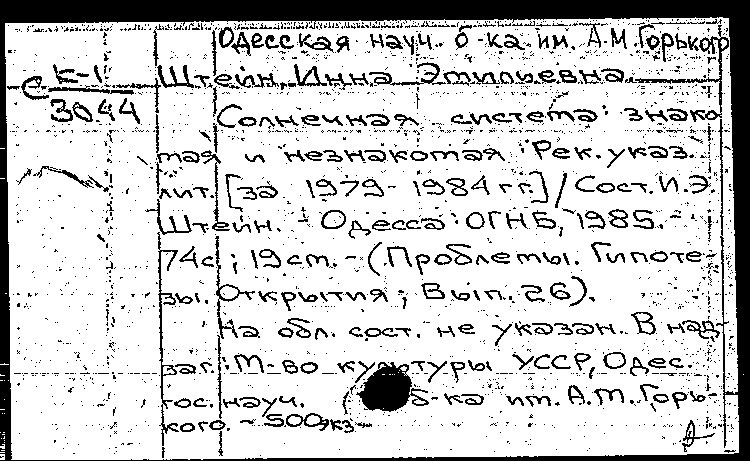 Одесская науч. б-ка им. А.М.Горького
с К-1
3044
Штейн, Инна Эмильевна
Солнечная система: знако
мая и незнакомая: Рек. указ.
лит. [за 1979-1984 гг.] / Сост. И.Э.
Штейн. - Одесса: ОГНБ, 1985. -
74с.; 19см. - (Проблемы. Гипоте-
зы. Открытия; Вып. 26).
На обл. сост. не указан. В над-
заг.: М-во культуры УССР, Одес.
гос. науч. б-ка им. А.М. Горь-
кого. - 500экз